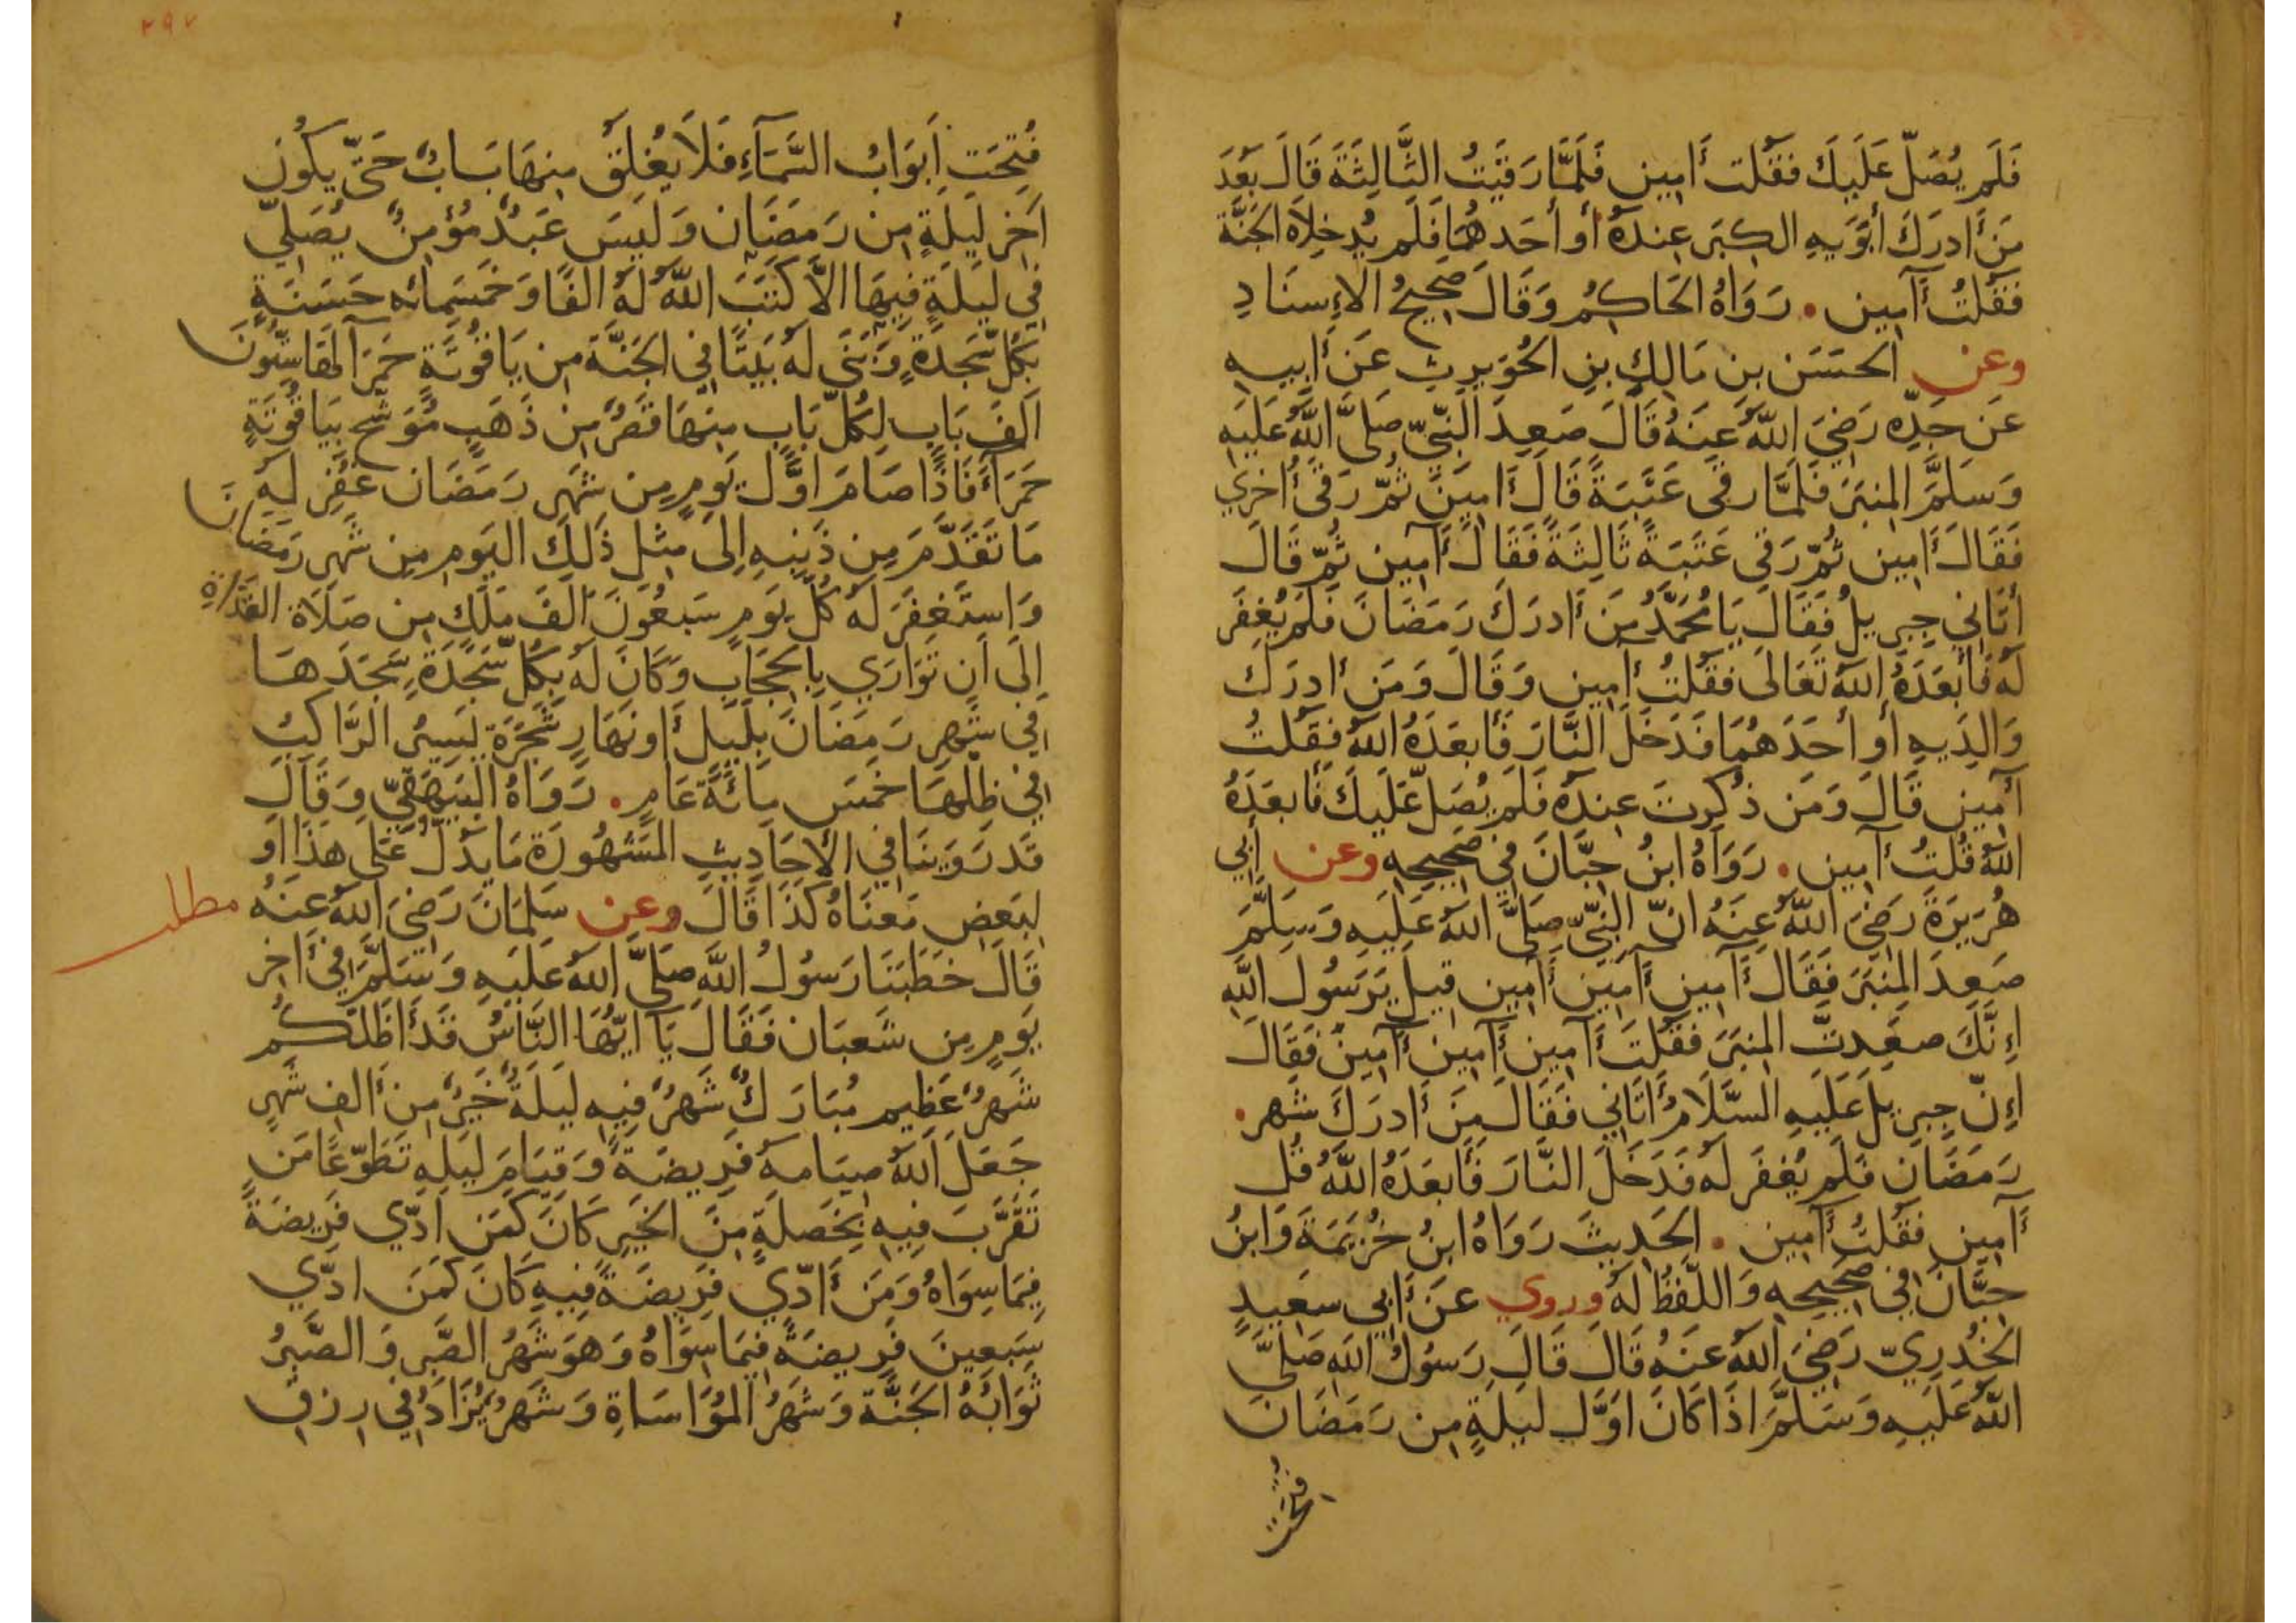 فَلَم يُصَلّ عَلَيكَ فقُلت أمِين فَلَمَّا رَقَيتُ الثَّالِثَةَ قَالَ بَعُدَ
مَن أدرَكَ أبَوَيهِ الكِبَر عِندَهُ أو أحَدهُمَا فَلَم يُدخِلاَهُ الجَنَّة
فَقُلتُ أمِين . رَوَاهُ الحَاكِمُ وَقَالَ صَحِيحُ الإِسنَادِ
وعن الحسَن بنِ مَالِكِ بنِ الحُوَيرِثِ عَن أبِيهِ
عَن جَدِّه رَضِيَ اللَّهُ عنهُ قَالَ صَعِدَ النَّبِيّ صَلَّى اللَّهُ عَلَيهِ
وَسَلَّمَ المِنبَرَ فَلَمَّا رقى عَتَبَةً قَالَ أمِينَ ثُمّ رَقى أخرَي
فَقَالَ أمِين ثُمّ رَقى عَتَبَةً ثَالِثَةً فَقَالَ أمِين ثُمّ قَالَ
أتَانِي جِبرِيلُ فَقَالَ يَا مُحَمَّدُ مَن أدرَكَ رَمَضَانَ فَلَم يُغفَر
لَهُ فَأبعَدَهُ اللَّهُ تَعَالَى فقُلتُ أمِين وَقَالَ وَمَن أدرَكَ
وَالِدَيهِ أو أحَدَهُمَا فَدَخَلَ النَّارَ فَأبعَدَهُ اللَّهُ فقُلتُ
أمِين قَالَ وَمَن ذُكِرتَ عِندَهُ فَلَم يُصَلّ عَلَيكَ فَأبعَدَهُ
اللَّهُ قُلتُ أمِين . رَوَاهُ ابنُ حِبَّانَ فِي صَحِيحِه وعن أبِي
هُرَيرَةَ رَضِيَ اللَّهُ عنهُ انّ النبيّ صَلَّى اللَّهُ عَلَيهِ وَسَلَّمَ
صَعِدَ المِنبَرَ فَقَالَ أمِين أمِين أمِين قيل يَرَسُولَ اللَّهِ
إِنَّكَ صعِدتَّ المِنبَرَ فَقُلتَ أمِين أمِين أمِين فَقَالَ
إِنّ جِبرِيلَ عَلَيهِ السَّلَامُ أتَانِي فَقَالَ مَن أدرَكَ شَهر .
رَمَضَان فَلَم يُغفَر لَهُ فَدَخَلَ النَّارَ فَأبعَدَهُ اللَّهُ قُل
أمِين فقُلتُ أمِين . الحَدِيثَ رَوَاهُ ابنُ خُزَيمَةَ وَابنُ
حِبَّانَ فِي صَحِيحِه وَاللَّفظُ لَهُ وروي عَن أبِي سَعِيدٍ
الخُدرِيّ رَضِيَ اللَّهُ عَنهُ قَالَ قَالَ رَسُولُ اللَّهِ صَلَّى
اللَّهُ عَلَيهِ وَسَلَّمَ اذَا كَانَ اوَّل لَيلَةٍ مِن رَمَضَانَ
فُتِحَت
٢٩٧
فُتِحَتِ أبوَابُ السَّمَآءِ فَلَا يُغلَقُ مِنهَا بَابٌ حَتّى يكُونَ
اخِر لَيلَةٍ مِن رَمَضَان وَلَيسَ عَبدٌ مُؤمِنٌ يُصَلِّي
فِي لَيلَةٍ فِيهَا الاَّ كَتَبَ اللَّهُ لَهُ الفًا وَخَمسَمِائه حَسَنَةٍ
بِكُلّ سَجدَةٍ وَبَنَى لَهُ بَيتًا فِي الجَنَّةَ مِن يَاقُوتَةٍ حَمرَآ لَهَا سِتُّونَ
اَلفَ بَابٍ لِكُلّ بَابٍ مِنهَا قَصرٌ مِن ذَهَبٍ مُوَشّح بِيَاقُوتَةٍ
حَمرَآءَ فَاذَا صَامَ اوَّلَ يَومٍ مِن شَهرِ رَمَضَان غُفِر لَهُ
مَا تَقَدَّمَ مِن ذَنبِهِ اِلَى مِثلِ ذَلِكَ اليَومِ مِن شَهرِ رَمَضَانَ
وَاستَغفَرَ لَهُ كُلّ يَومٍ سَبعُونَ اَلفَ مَلَكٍ مِن صَلَاة الغَدَاةِ
اِلَى اَن تَوَارَي بِالحِجَابِ وَكَانَ لَهُ بِكُلّ سَجدَةٍ سَجَدَهَا
فِي شَهرِ رَمَضَانَ بِلَيلٍ أو نَهَارٍ شَجَرَة يَسِيرُ الرَّاكِبُ
فِي ظِلّهَا خَمسَ مِائَةَ عَامٍ . رَوَاهُ البَيهَقِيّ وَقَالَ
قَد رَوَينَا فِي الأحَادِيثِ المَشهُورَة مَا يَدُلّ عَلَى هذَا او
لِبَعضِ مَعنَاهُ كَذَا قَالَ وعن سَلمَانَ رَضِيَ اللَّهُ عَنهُ
مطلب
قَالَ خَطَبَنَا رَسُولُ اللَّهِ صَلَّى اللَّهُ عَلَيهِ وَسَلَّمَ فِي أخِر
يَومٍ مِن شَعبَان فَقَالَ يَآ ايّهَا النَّاسُ قَد أظَلّكُم
شَهرٌ عَظِيم مُبَارَكٌ شَهرٌ فِيهِ لَيلَةٌ خَيرٌ مِن ألفِ شَهرٍ
جَعَلَ اللَّهُ صِيَامهُ فَرِيضَةً وَقِيَامَ لَيلِهِ تَطَوّعًا مَن
تَقَرَّبَ فِيهِ بِخَصلَةٍ مِنَ الخَيرِ كَانَ كَمَن ادّي فَرِيضَةً
فِيمَا سِوَاهُ وَمَن أدّي فَرِيضَةً فِيهِ كَانَ كَمَن ادّي
سَبعِينَ فَرِيضَةً فِيمَا سِوَاهُ وَهوَ شَهرُ الصَّبرِ وَالصَّبرُ
ثَوَابُهُ الجَنَّة وَشَهرُ المُوَاسَاةِ وَشَهرٌ يُزَادُ فِي رِزقِ